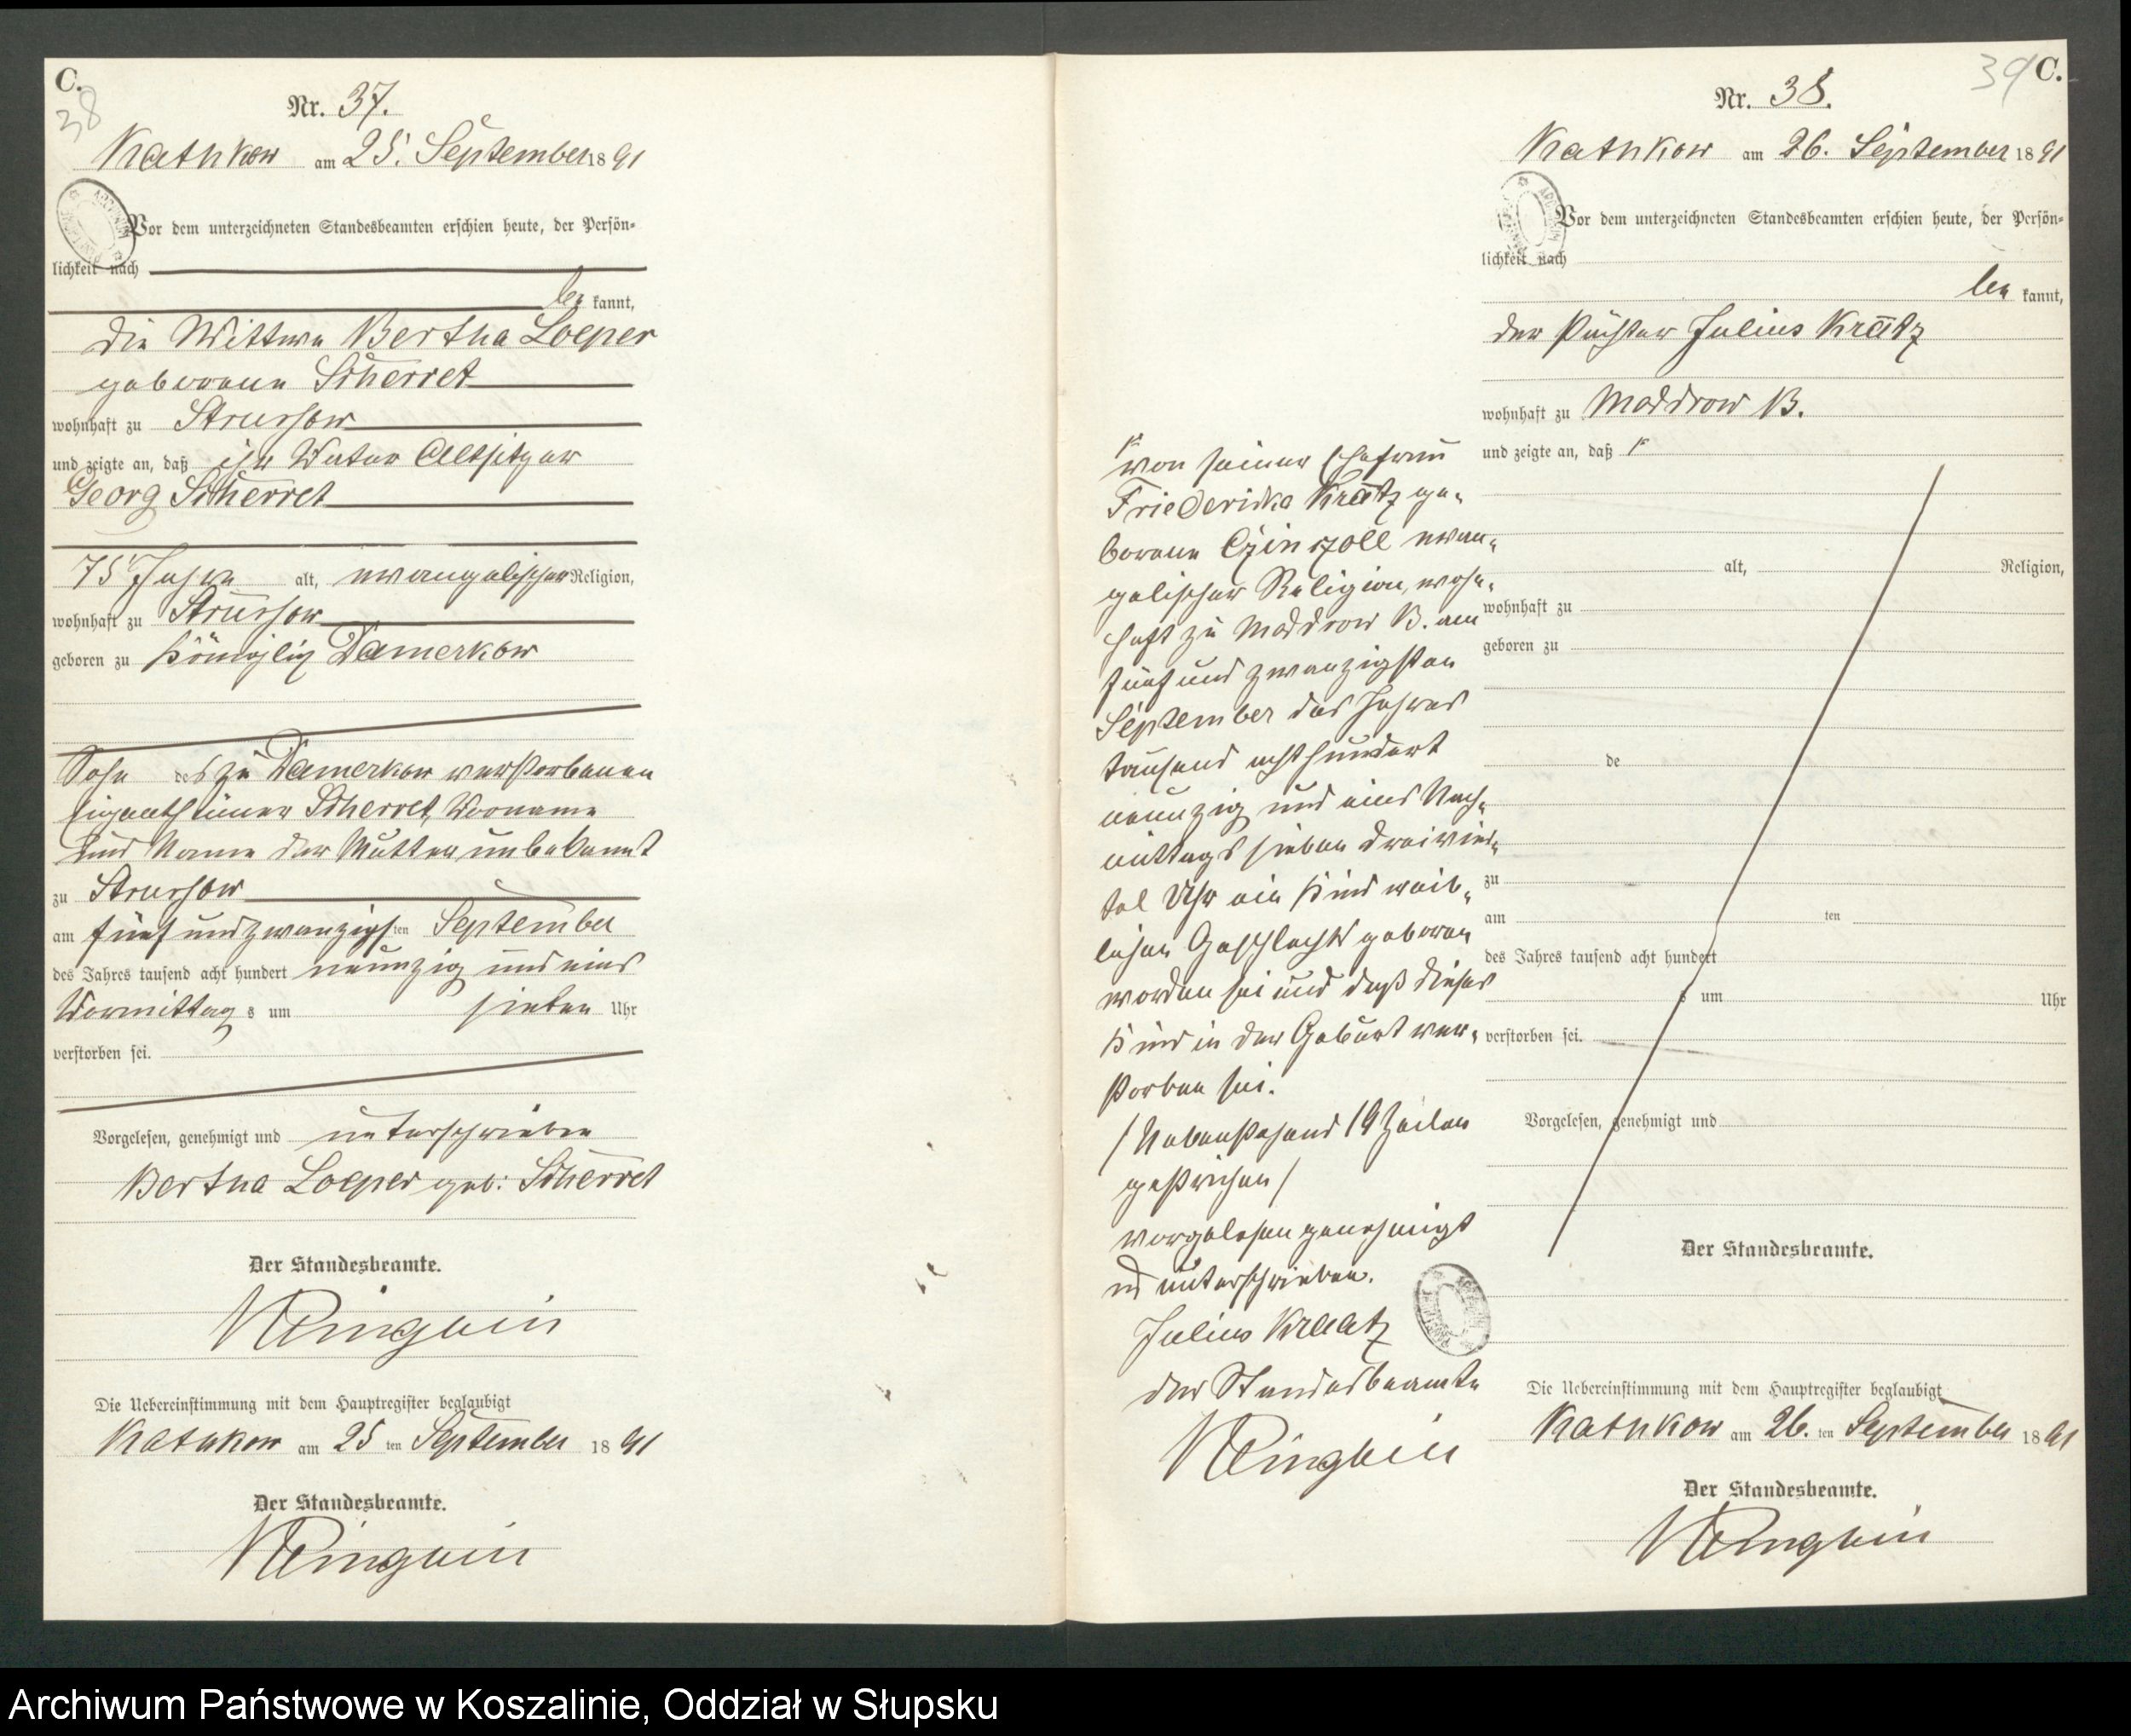 C.
38
Nr. 37.
Kathkow am 25. September 1891
Vor dem unterzeichneten Standesbeamten erschien heute, der Persön=
lichkeit nach
be kannt,
die Wittwe Bertha Loeper
geborene Scherret
wohnhaft zu Strussow
und zeigte an, daß ihr Vater Altsitzer
Georg Scherret
75 Jahre alt, evangelischer Religion,
wohnhaft zu Strussow
geboren zu Königlich Damerkow
Sohn des zu Damerkow verstorbenen
Eigenthümer Scherret, Vorname
und Name der Mutter unbekannt
zu Strussow
am fünf und zwanzigsten September
des Jahres tausend acht hundert neunzig und eins
Vormittag s um sieben Uhr
verstorben sei.
Vorgelesen, genehmigt und unterschrieben
Bertha Loeper geb: Scherret
Der Standesbeamte.
Die Uebereinstimmung mit dem Hauptregister beglaubigt
Kathkow am 25 ten September 1891
Der Standesbeamte.
39 C.
Nr. 38.
Kathkow am 26. September 1891
Vor dem unterzeichneten Standesbeamten erschien heute, der Persön=
lichkeit nach
be kannt,
der Pächter Julius Kratz
wohnhaft zu Moddrow B.
und zeigte an, daß
von seiner Ehefrau
Friederike Kratz ge=
borene Czinzoll evan=
gelischer Religion, wohn=
haft zu Moddrow B. am
fünf und zwanzigsten
September des Jahres
tausend acht hundert
neunzig und eins Nach=
mittags sieben dreivier=
tel Uhr ein Kind weib=
lichen Geschlechts geboren
worden sei und daß dieses
Kind in der Geburt ver=
storben sei.
/Nebenstehend 19 Zeilen
gestrichen/
vorgelesen genehmigt
und unterschrieben.
Julius Kraatz
der Standesbeamte
alt, Religion,
wohnhaft zu
geboren zu
de
zu
am ten
des Jahres tausend acht hundert
s um Uhr
verstorben sei.
Vorgelesen, genehmigt und
Der Standesbeamte.
Die Uebereinstimmung mit dem Hauptregister beglaubigt
Kathkow am 26. ten September 1891
Der Standesbeamte.
Archiwum Państwowe w Koszalinie, Oddział w Słupsku